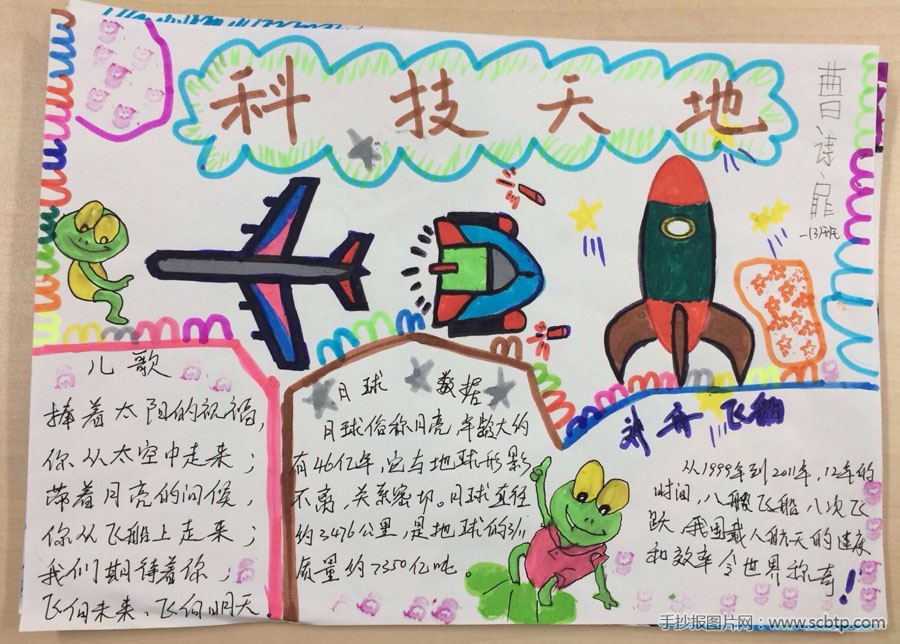 科技天地
曹诗
一(3)班
儿歌
捧着太阳的祝福,
你从太空中走来;
带着月亮的问候,
你从飞船上走来;
我们期待着你;
飞向未来、飞向明天。
月球 数据
月球俗称月亮,年数大约
有46亿年,它与地球形影
不离,关系密切。月球直径
约3476公里,是地球的3/11
质量约7350亿吨
神舟飞船
从1999年到2011年,12年的
时间,八艘飞船八次飞
跃,我国载人航天的速度
和效率令世界称奇!
手抄报图片网:www.scbtp.com